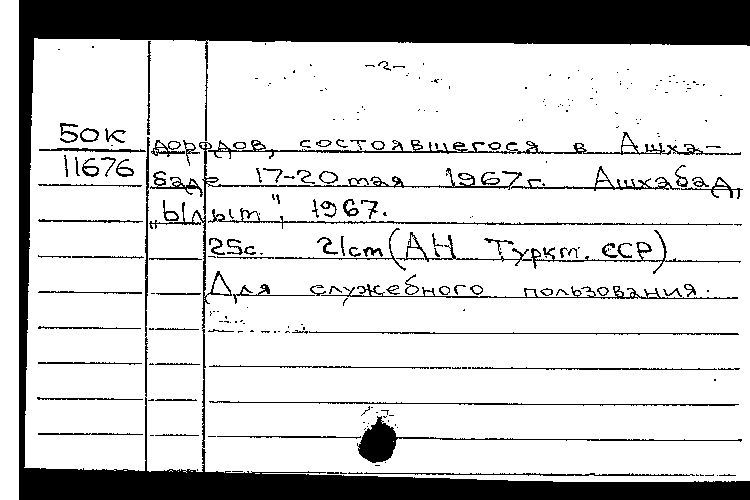 -2-
50к
11676
дородов, состоявшегося в Ашха-
баде 17-20 мая 1967г. Ашхабад,
„Ылым", 1967.
25с. 21cm (АН Туркм. ССР).
Для служебного пользования.